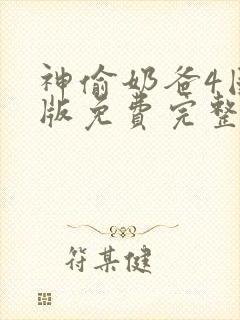 神偷奶爸4国
版免费完整
符某健